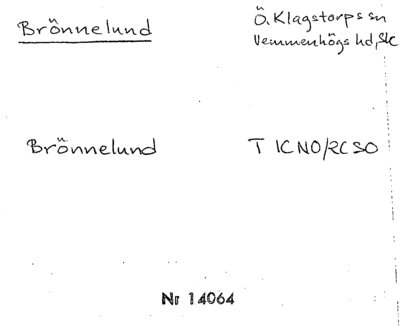 Brönnelund
Ö. Klagstorps sn
Vemmenhögs hd, Sk
Brönnelund
T 1CNO/2CSO
Nr 14064